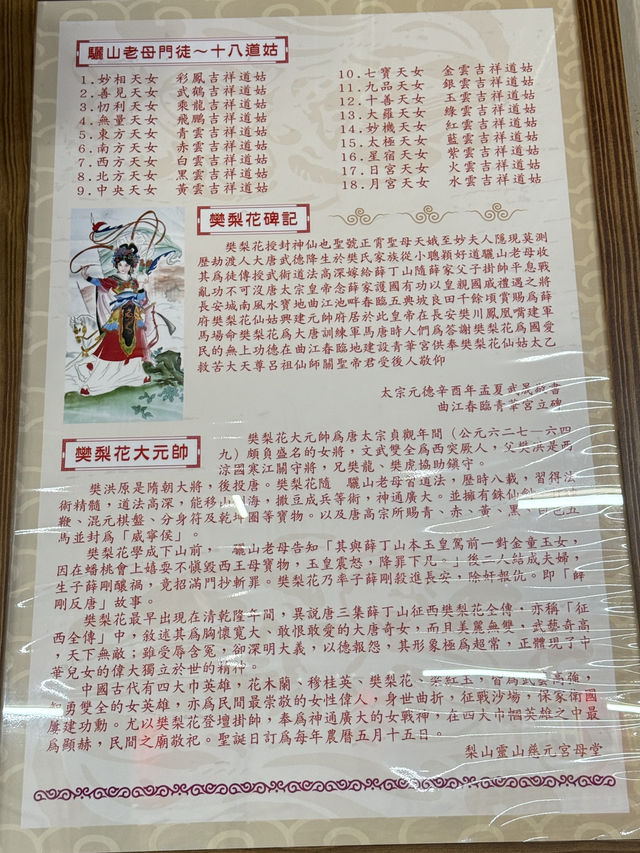 驪山老母門徒～十八道姑
1.妙相天女 彩鳳吉祥道姑
2.善見天女 武鶴吉祥道姑
3.忉利天女 乘龍吉祥道姑
4.無量天女 飛鵬吉祥道姑
5.東方天女 青雲吉祥道姑
6.南方天女 赤雲吉祥道姑
7.西方天女 白雲吉祥道姑
8.北方天女 黑雲吉祥道姑
9.中央天女 黃雲吉祥道姑
10.七寶天女 金雲吉祥道姑
11.九品天女 銀雲吉祥道姑
12.十善天女 玉雲吉祥道姑
13.大羅天女 綠雲吉祥道姑
14.妙機天女 紅雲吉祥道姑
15.太極天女 藍雲吉祥道姑
16.星宿天女 紫雲吉祥道姑
17.日宮天女 火雲吉祥道姑
18.月宮天女 水雲吉祥道姑
樊梨花碑記
樊梨花授封神仙也聖號正霄聖母天娥至妙夫人隱現莫測
歷劫渡人大唐武德降生於樊氏家族從小聰穎好道驪山老母收
其為徒傳授武術道法高深嫁給薛丁山隨薛家父子掛帥平息戰
亂功不可沒唐太宗皇帝念薛家護國有功以皇親國戚禮遇之將
長安城南風水寶地曲江池畔春臨五典坡良田千餘頃賞賜為薛
府樊梨花仙姑興建元帥府居於此皇帝在長安樊川鳳凰嘴建軍
馬場命樊梨花為大唐訓練軍馬唐時人們為答謝樊梨花為國愛
民的無上功德在曲江春臨地建設青華宮供奉樊梨花仙姑太乙
救苦大天尊呂祖仙師關聖帝君受後人敬仰
太宗元德辛酉年孟夏武晟敬書
曲江春臨青華宮立碑
樊梨花大元帥
樊梨花大元帥為唐太宗貞觀年間（公元六二七─六四
九）頗負盛名的女將，文武雙全為西突厥人，父樊洪是西
涼國寒江關守將，兄樊龍、樊虎協助鎮守。
樊洪原是隋朝大將，後投唐。樊梨花隨 驪山老母習道法，歷時八載，習得法
術精髓，道法高深，能移山倒海，撒豆成兵等術，神通廣大。並擁有誅仙劍、
鞭、混元棋盤、分身符及乾坤圈等寶物。以及唐高宗所賜青、赤、黃、黑、白色五
馬並封為「威寧侯」。
樊梨花學成下山前， 驪山老母告知「其與薛丁山本玉皇駕前一對金童玉女，
因在蟠桃會上嬉耍不慎毀西王母寶物，玉皇震怒，降罪下凡。」後二人結成夫婦，
生子薛剛釀禍，竟招滿門抄斬罪。樊梨花乃率子薛剛殺進長安，除奸報仇。即「薛
剛反唐」故事。
樊梨花最早出現在清乾隆年間，異說唐三集薛丁山征西樊梨花全傳，亦稱「征
西全傳」中，敘述其為胸懷寬大、敢恨敢愛的大唐奇女，而且美麗無雙，武藝奇高
，天下無敵；雖受辱含冤，卻深明大義，以德報怨，其形象極為超常，正體現了中
華兒女的偉大獨立於世的精神。
中國古代有四大巾英雄，花木蘭、穆桂英、樊梨花、梁紅玉，皆為武藝高強，
智勇雙全的女英雄，亦為民間最崇敬的女性偉人，身世曲折，征戰沙場，保家衛國
屢建功勳。尤以樊梨花登壇掛帥，奉為神通廣大的女戰神，在四大巾幗英雄之中最
為顯赫，民間之廟敬祀。聖誕日訂為每年農曆五月十五日。
梨山靈山慈元宮母堂